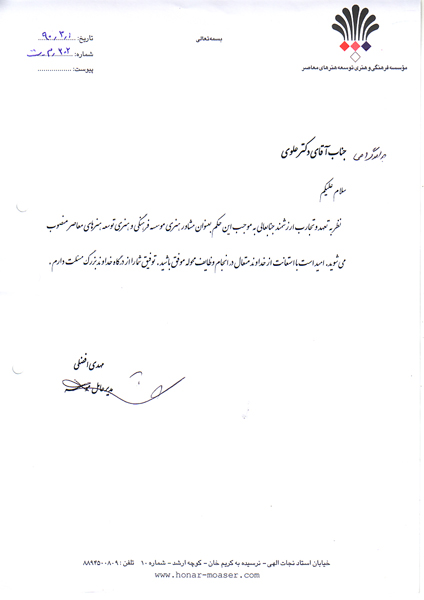 بسمه‌تعالی
تاریخ: ۹۰,۳,۱
شماره: ۲۰۲
پیوست: ................
مؤسسه فرهنگی و هنری توسعه هنرهای معاصر
جناب آقای دکتر علوی
سلام علیکم
نظر به تعهد و تجارب ارزشمند جنابعالی به موجب این حکم بعنوان مشاور هنری موسسه فرهنگی و هنری توسعه هنرهای معاصر منصوب
می شوید. امید است با استعانت از خداوند متعال در انجام وظایف محوله موفق باشید. توفیق شما را از درگاه خداوند بزرگ مسئلت دارم.
مهدی افضلی
مدیرعامل
خیابان استاد نجات الهی - نرسیده به کریم خان - کوچه ارشد - شماره ۱۰ تلفن: ۸۸۹۴۵۰۰۸-۹
www.honar-moaser.com